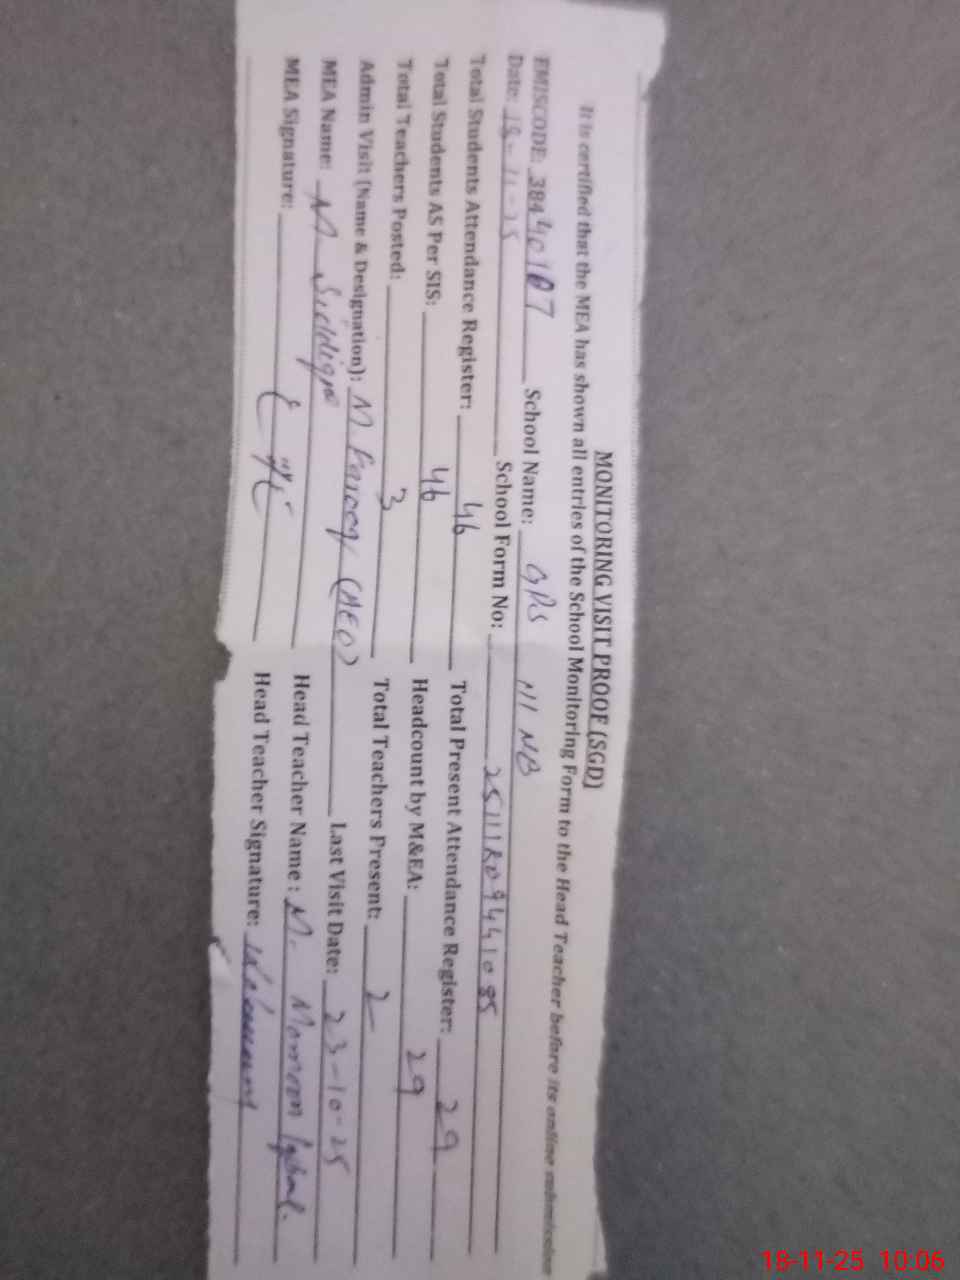 MONITORING VISIT PROOF (SGD)
It is certified that the MEA has shown all entries of the School Monitoring Form to the Head Teacher before its online submission
EMISCODE: 38440107 School Name: GPS 111 NB
Date: 18-11-25 School Form No: 251118094441085
Total Students Attendance Register: 46 Total Present Attendance Register: 29
Total Students AS Per SIS: 46 Headcount by M&EA: 29
Total Teachers Posted: 3 Total Teachers Present: 2
Admin Visit (Name & Designation): M Farooq (AEO) Last Visit Date: 23-10-25
MEA Name: M Siddique Head Teacher Name: M. Mamoon Iqbal.
MEA Signature: Head Teacher Signature:
18-11-25 10:06